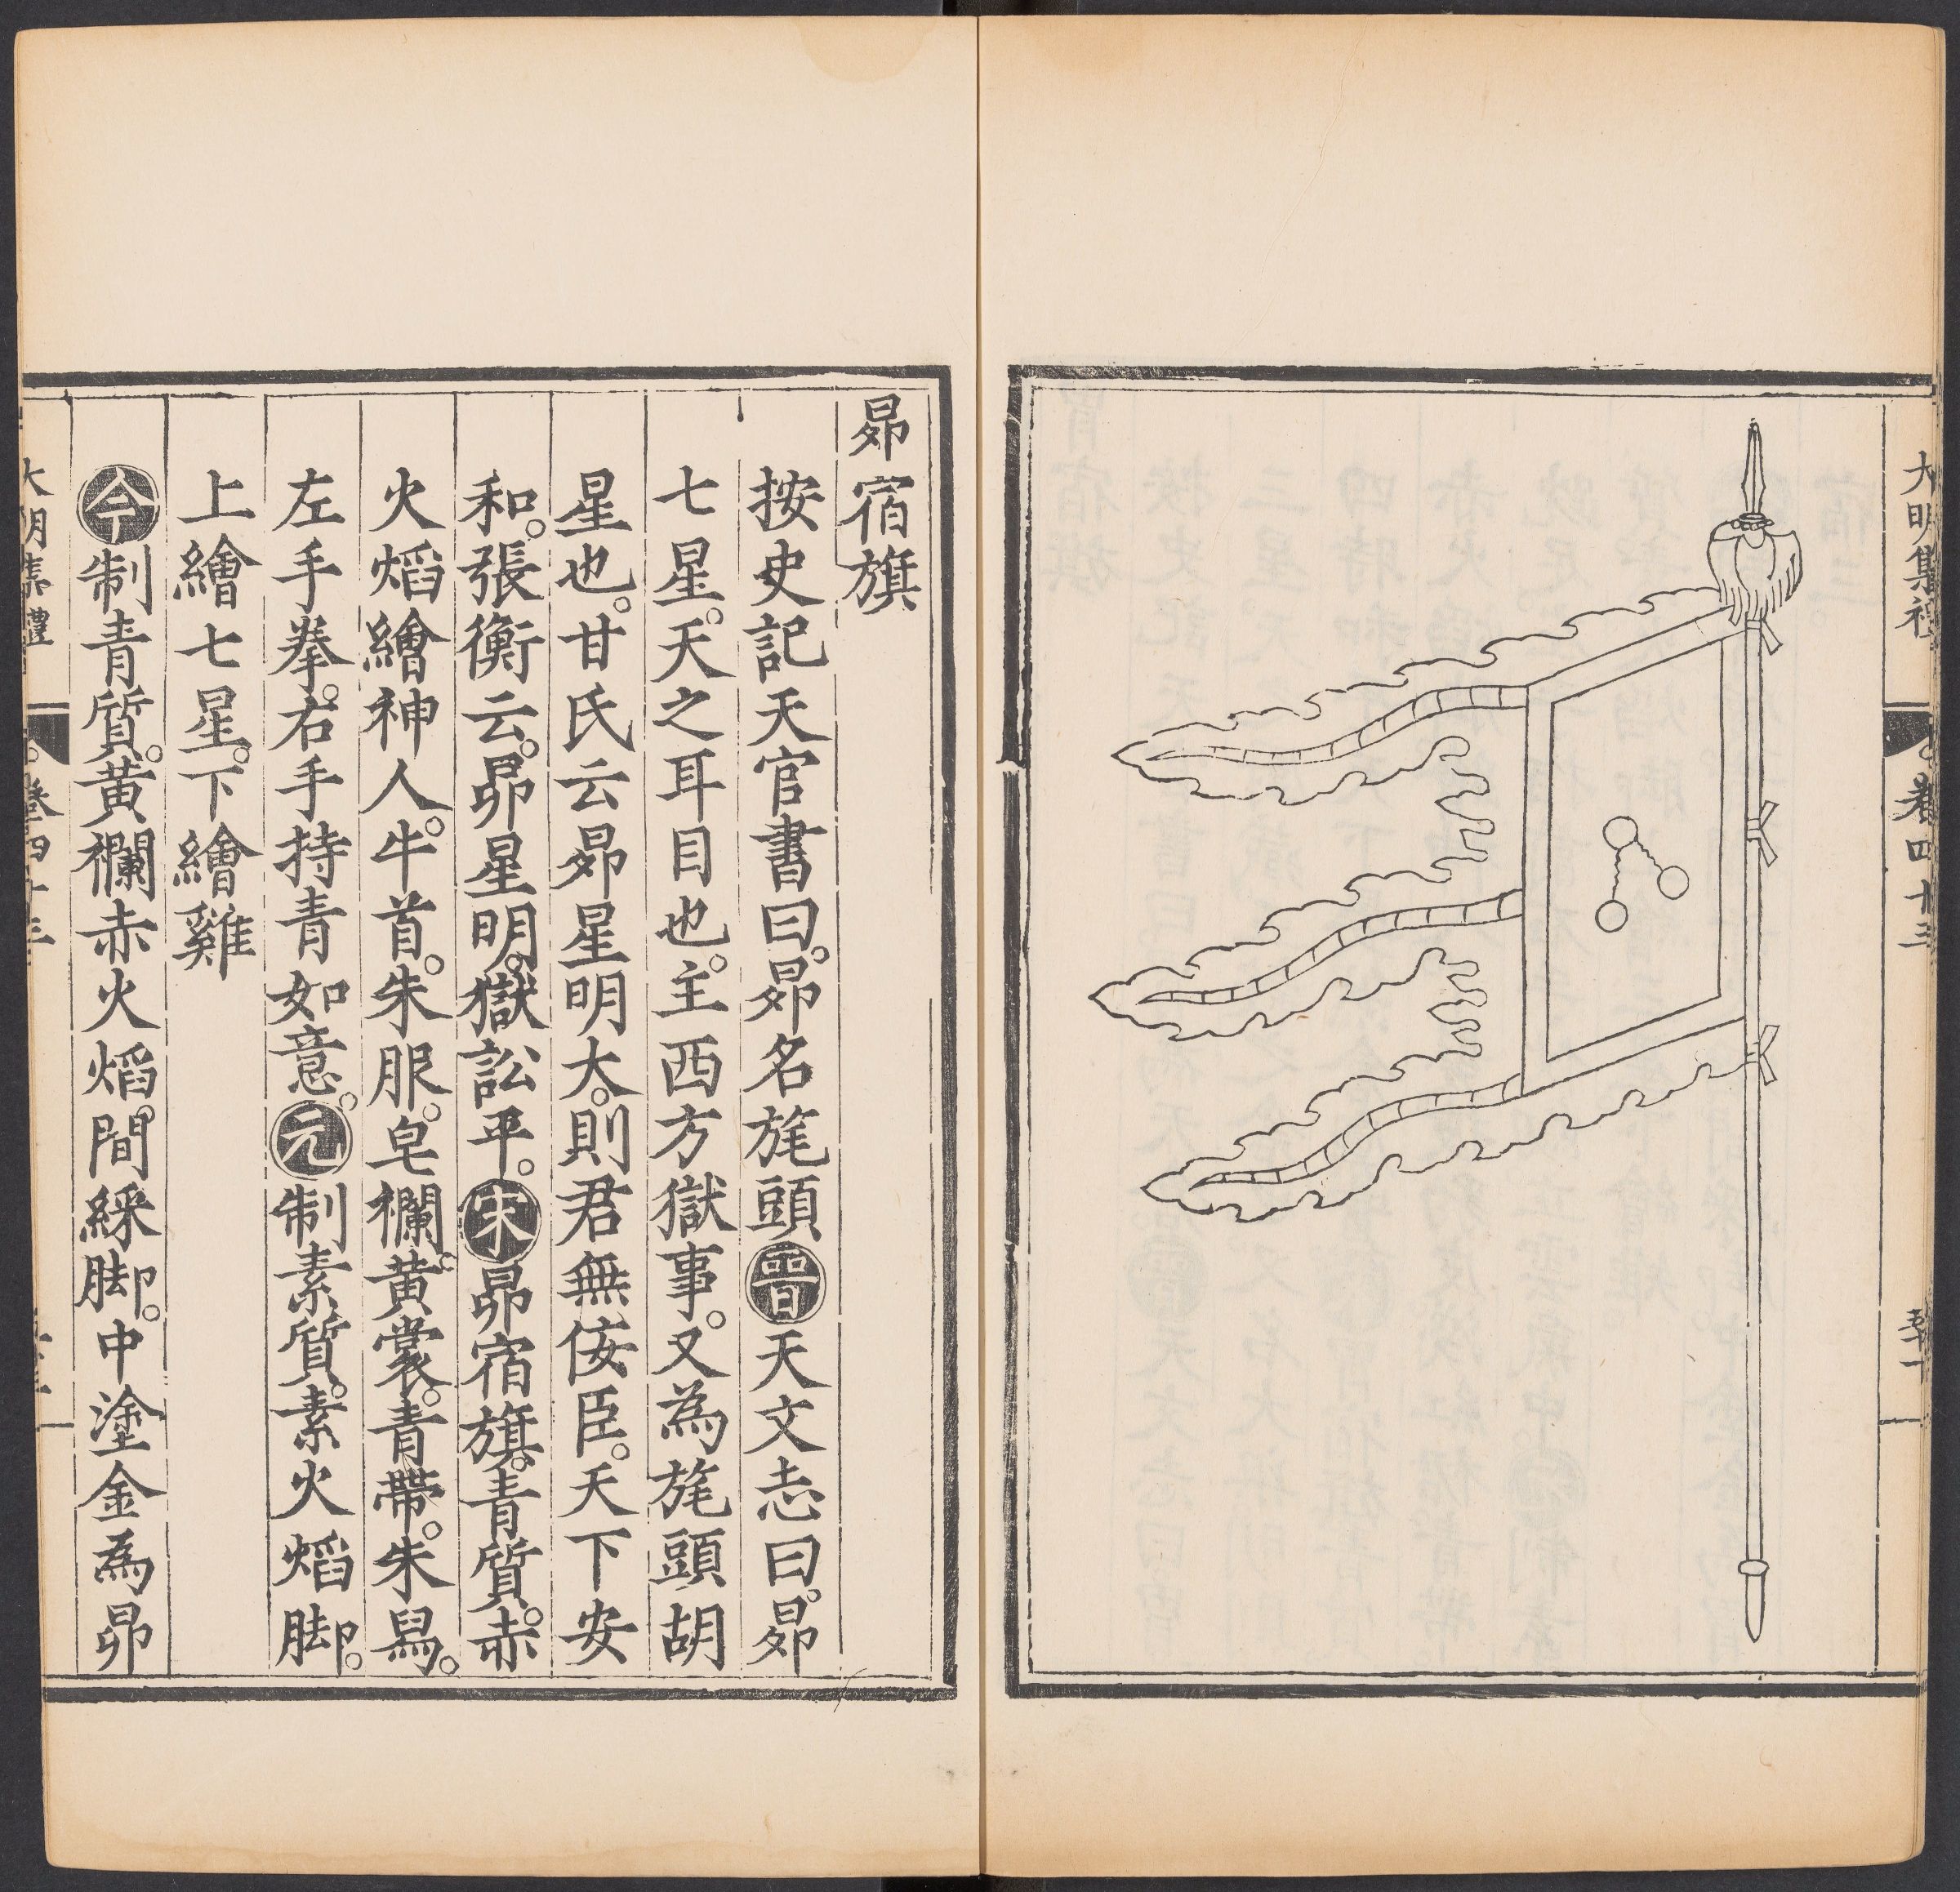 大明集禮
卷四十三
五十一
昴宿旗
按史記天官書曰。昴名旄頭晉天文志曰。昴
七星。天之耳目也。主西方獄事。又為旄頭胡
星也。甘氏云昴星明大。則君無佞臣。天下安
和。張衡云。昴星明。獄訟平。宋昴宿旗。青質。赤
火熖繪神人。牛首。朱服。皂襴。黃裳。青帶。朱舄。
左手拳。右手持青如意。元制素質。素火熖脚。
上繪七星。下繪雞
今制青質。黃襴赤火熖。間綵脚。中塗金為昴
大明集禮
卷四十三